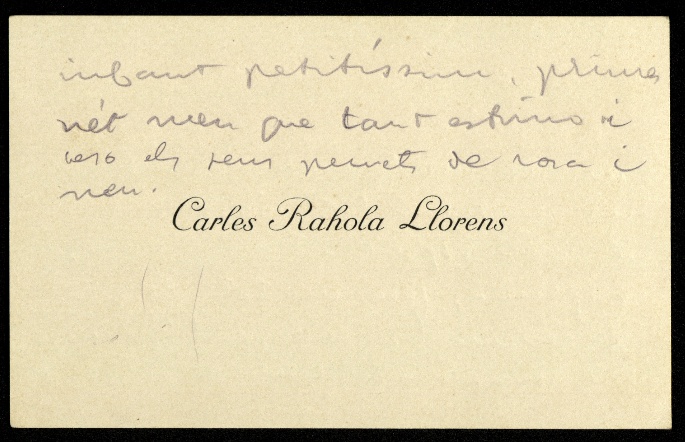 infant petitíssim, primer
nét meu que tant estimo i
beso els seus peuets de rosa i
neu.
Carles Rahola Llorens